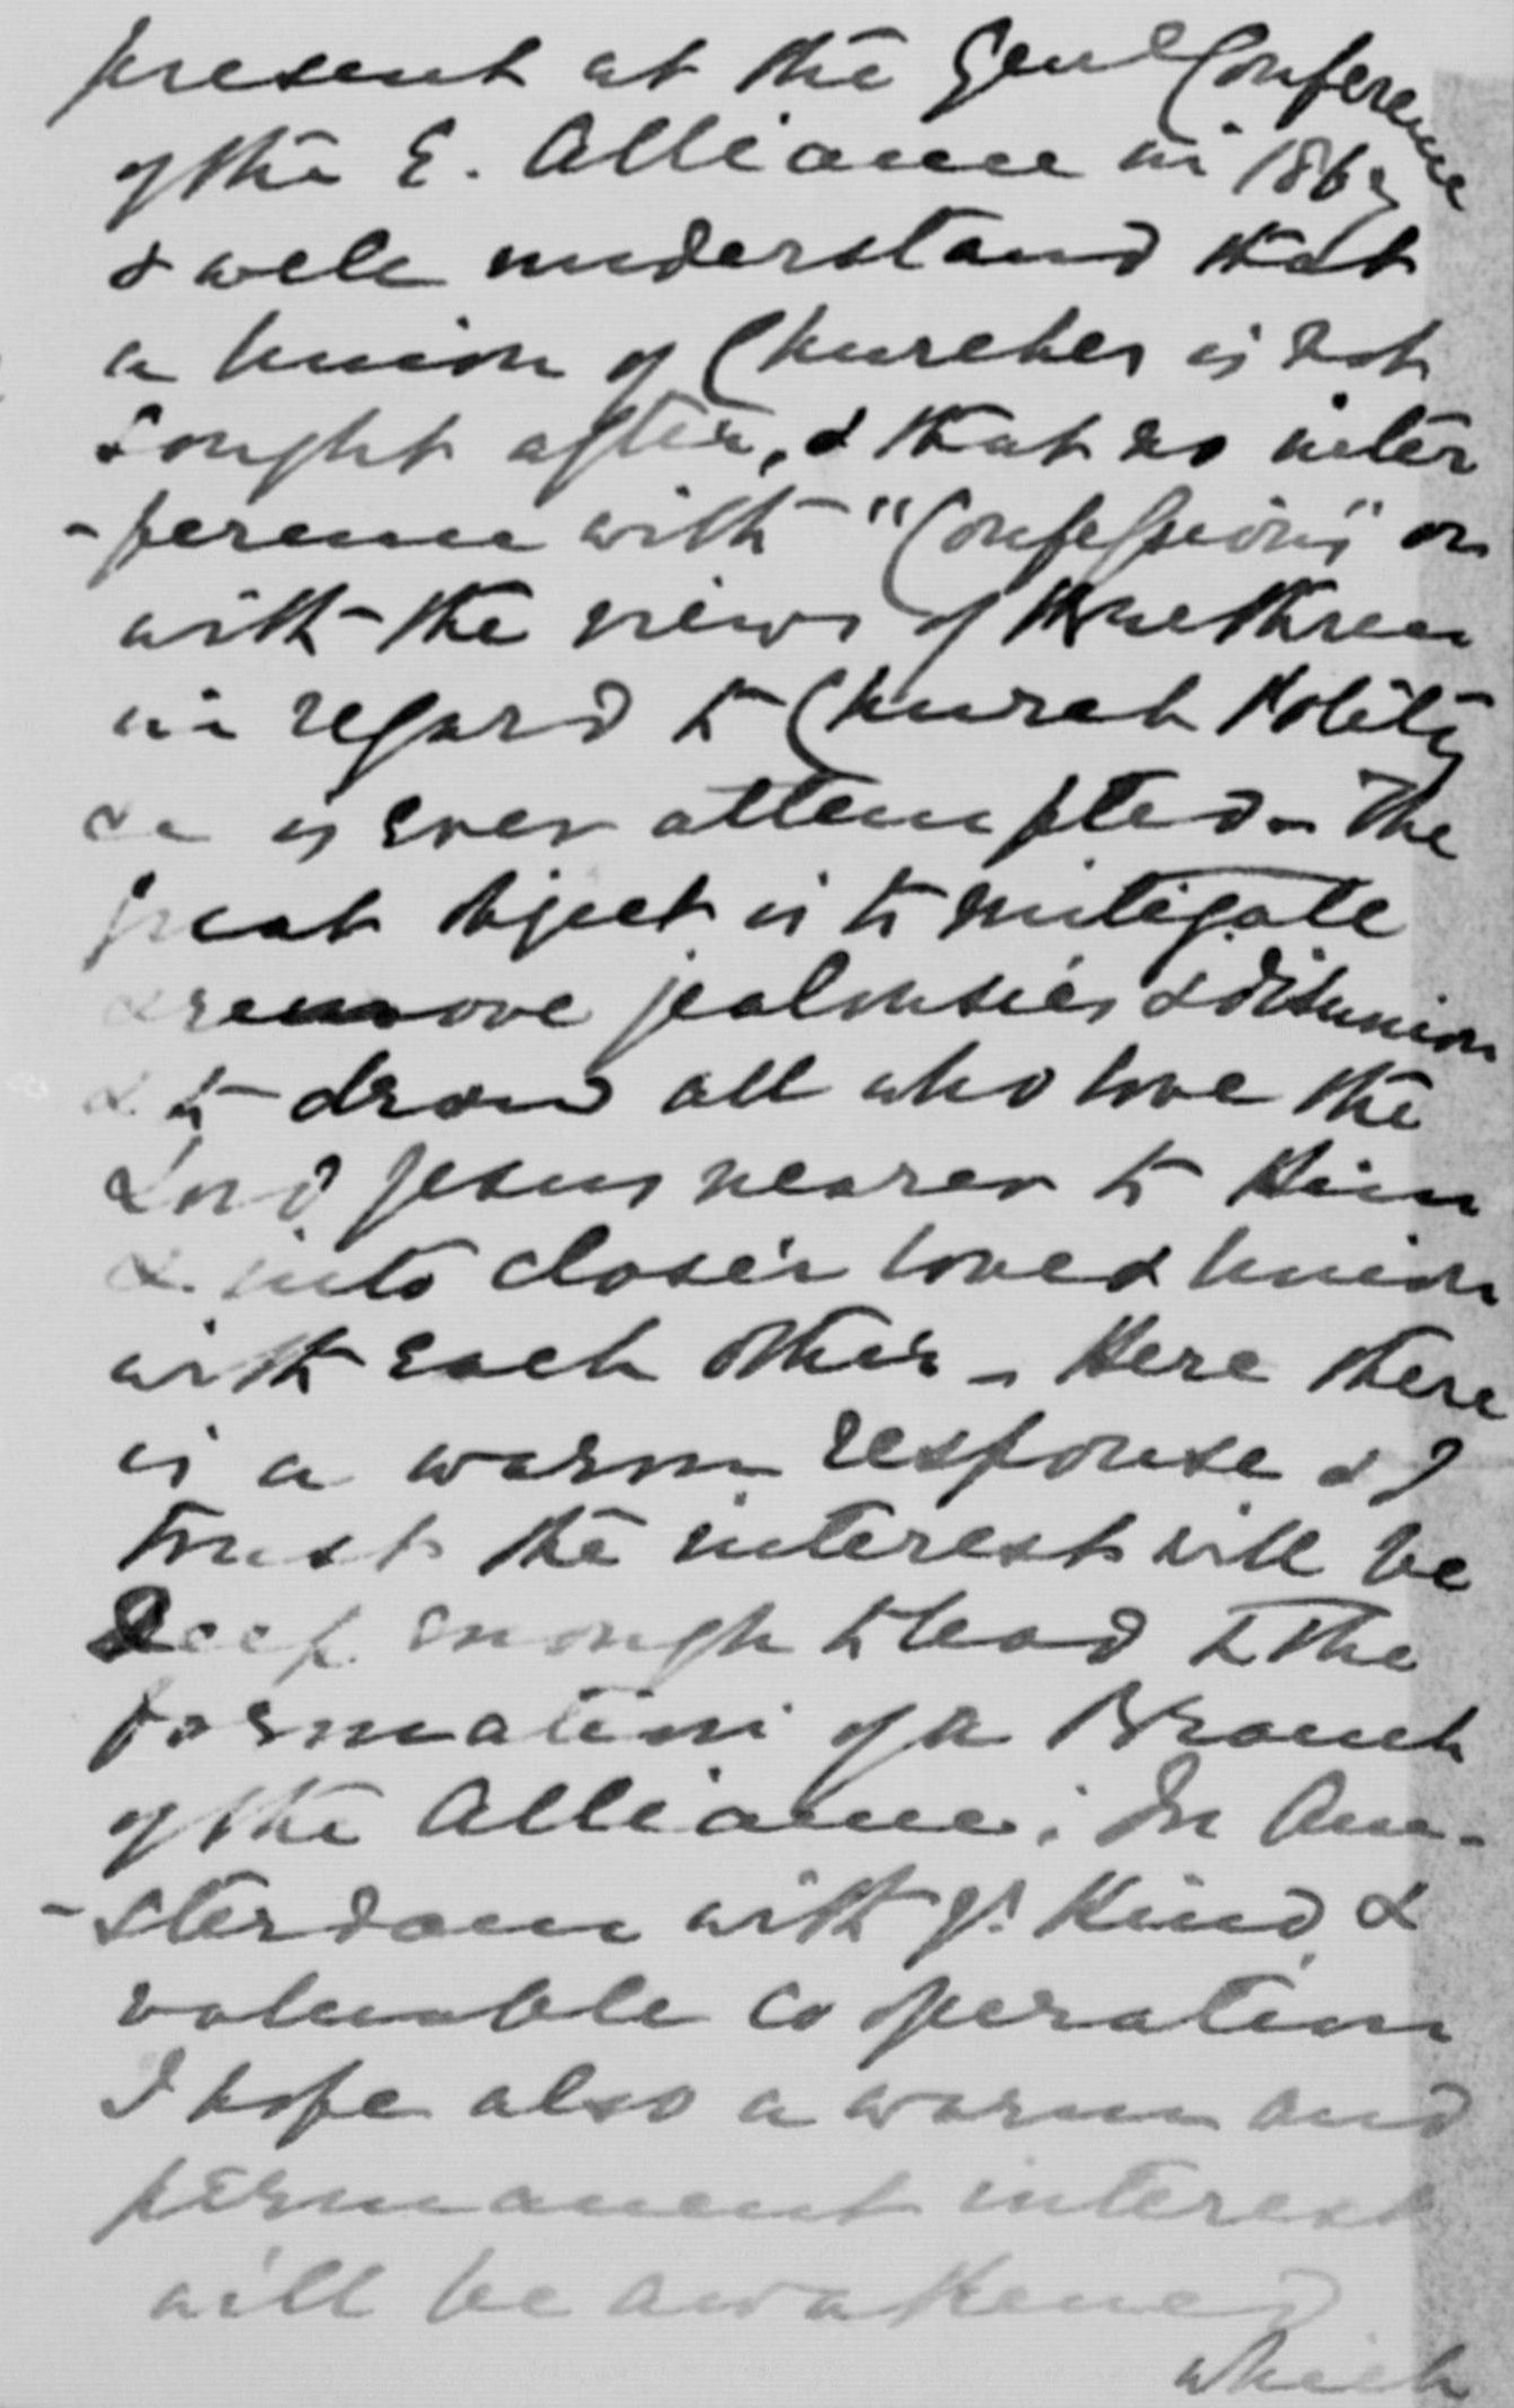 present at the Genl Conference
of the E. Alliance in 1867
& well understand that
a Union of Churches is not
sought after, & that no inter
-ference with "Confessions" or
with the views of Brethren
in regard to Church Polity
&c is ever attempted - The
great object is to mitigate
& remove jealousies & disunion
& to draw all who love the
Lord Jesus nearer to Him
& into closer love & Union
with each other - Here there
is a warm response & I
trust the interest will be
deep enough to lead to the
formation of a Branch
of the Alliance. In Am-
-sterdam with yr Kind &
valuable co operation
I hope also a warm and
permanent interest
will be awakened
which